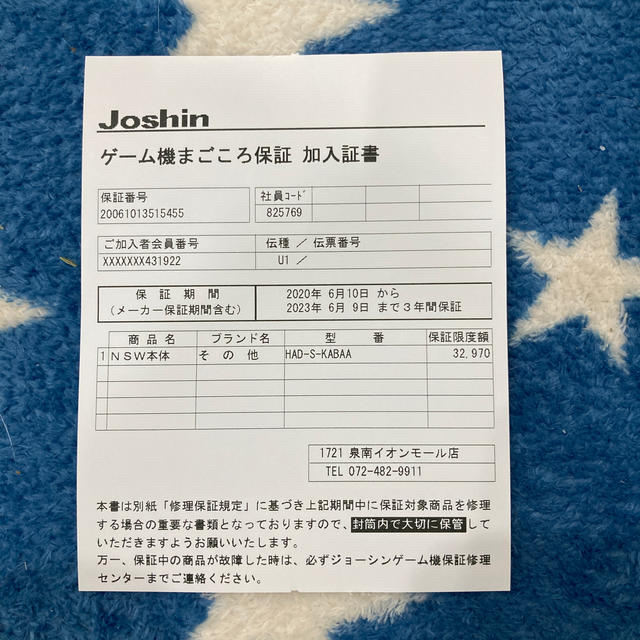 Joshin
ゲーム機まごころ保証 加入証書
保証番号
20061013515455
社員ｺｰﾄﾞ
825769
ご加入者会員番号
XXXXXXX431922
伝種 ／ 伝票番号
U1 ／
保 証 期 間
(メーカー保証期間含む)
2020年 6月10日 から
2023年 6月 9日 まで３年間保証
商 品 名 ブランド名 型 番 保証限度額
1 ＮＳＷ本体 そ の 他 HAD-S-KABAA 32,970
1721 泉南イオンモール店
TEL 072-482-9911
本書は別紙「修理保証規定」に基づき上記期間中に保証対象商品を修理
する場合の重要な書類となっておりますので、封筒内で大切に保管して
いただきますようお願いいたします。
万一、保証中の商品が故障した時は、必ずジョーシンゲーム機保証修理
センターまでご連絡ください。